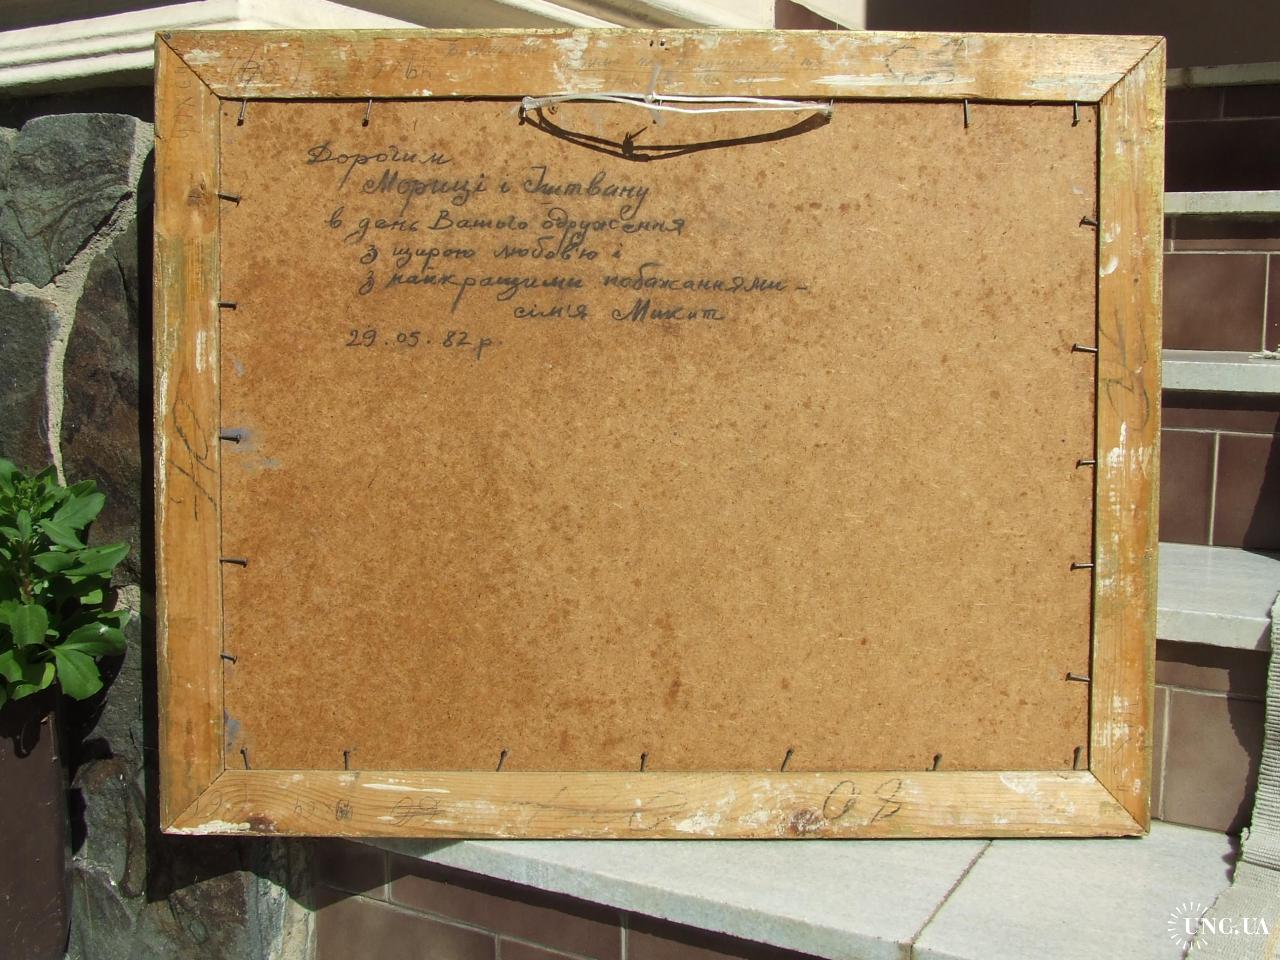 Дорогим
Мориці і Іштвану
в день Вашого одруження
з щирою любов'ю і
з найкращими побажаннями –
сім'я Микит
29.05.82 р.
UNC.UA